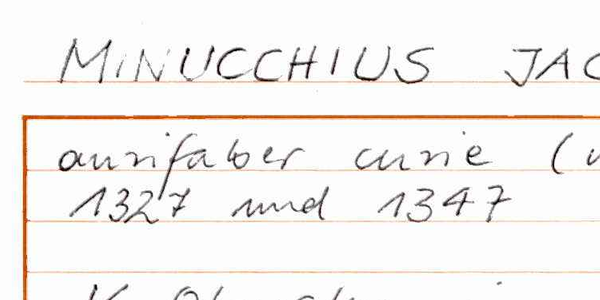 MINUCCHIUS JAC
aurifaber curie (
1327 und 1347